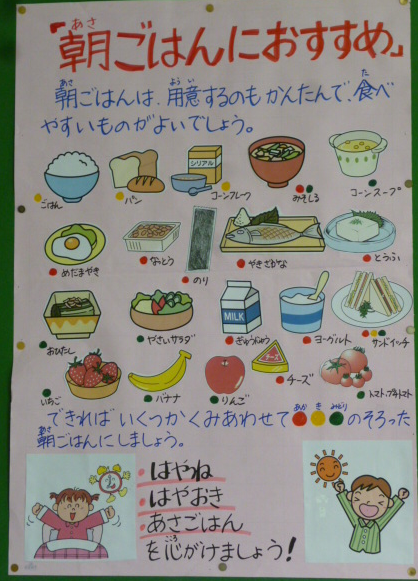 「朝ごはんにおすすめ」
あさ
朝ごはんは、用意するのもかんたんで、食べ
あさ ようい た
やすいものがよいでしょう。
シリアル
ごはん
パン
コーンフレーク
みそしる
コーンスープ
めだまやき
なっとう
のり
やきざかな
とうふ
MILK
おひたし
やさいサラダ
ぎゅうにゅう
ヨーグルト
サンドイッチ
チーズ
いちご
バナナ
りんご
チーズ
トマト・プチトマト
できればいくつかくみあわせて●●●のそろった
あか き みどり
朝ごはんにしましょう。
あさ
・はやね
・はやおき
・あさごはん
を心がけましょう!
こころ